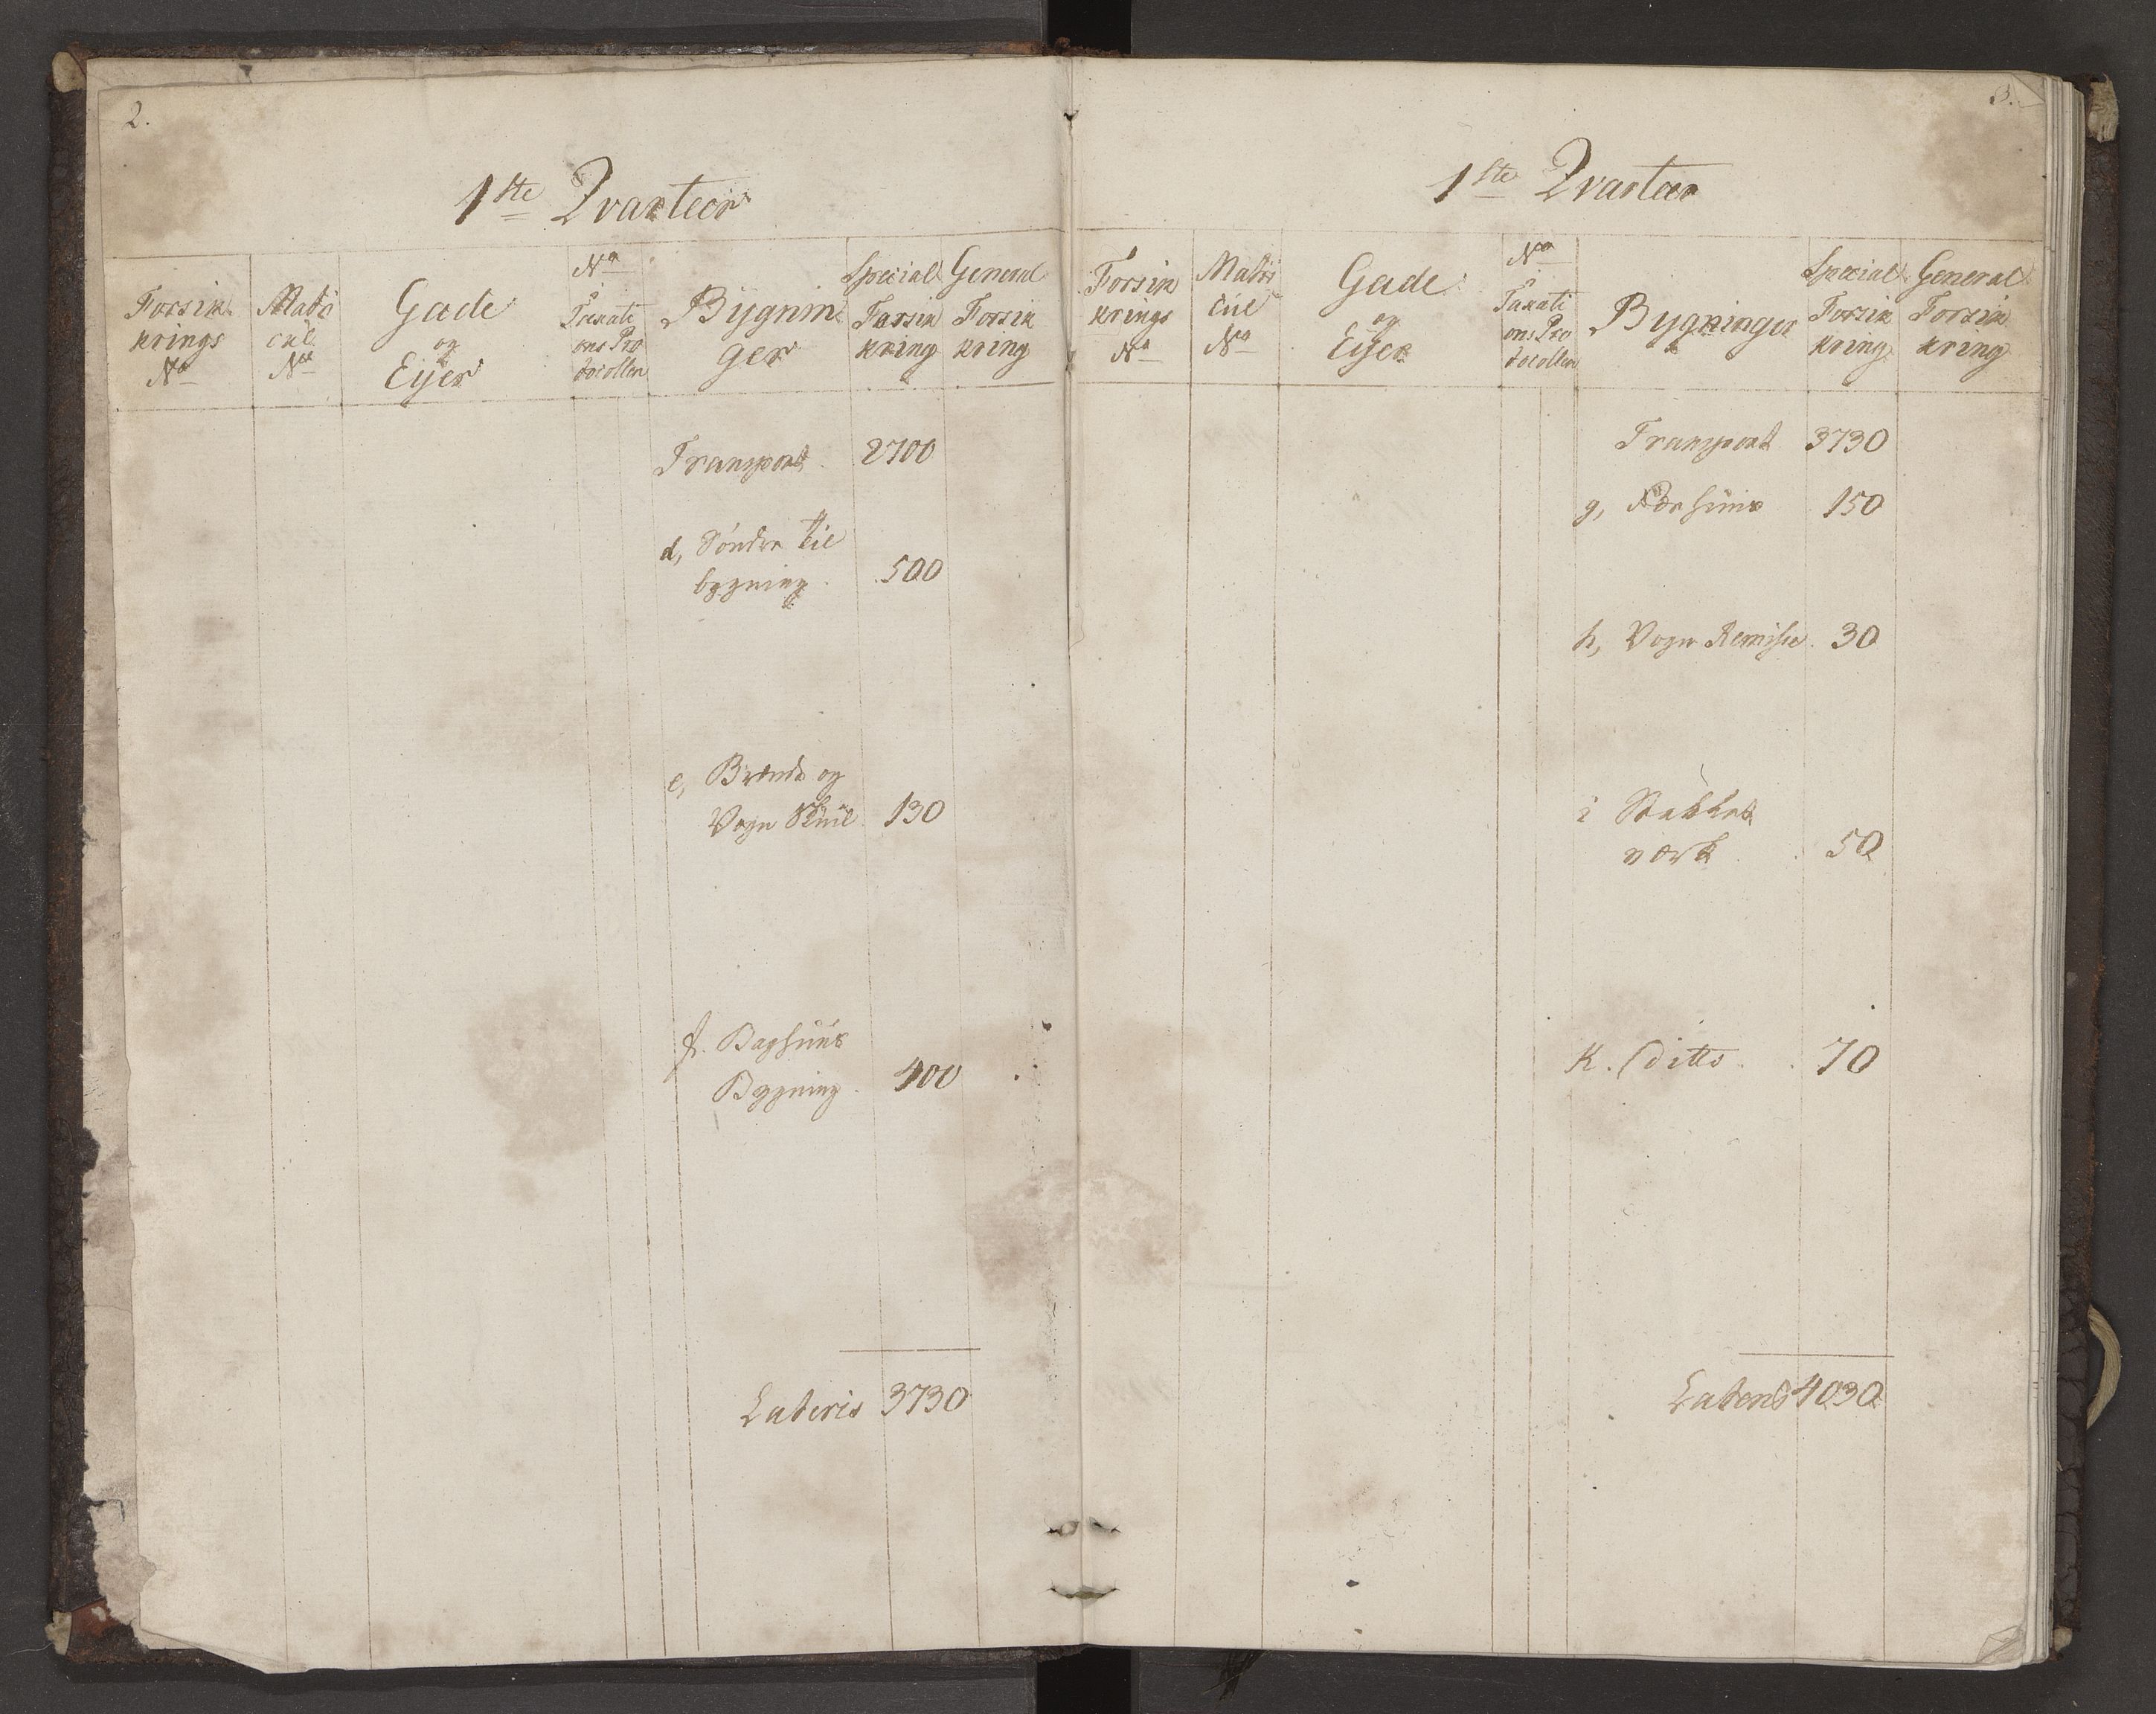 2.
1ste Qvarteer
Forsik
krings
No
Matri
cul
No
Gade
og
Eyer
No
i
Taxati
ons Pro
tocollen
Bygnin
ger
Special
Forsik
kring
General
Forsik
kring
Transport 2700
d, Söndre til
bygning . 500
e, Brænde og
Vogn Skuul 130
f. Baghuus
Bygning . 400
Lateris 3730
3.
1ste Qvarteer
Forsik
krings
No
Matri
cul
No
Gade
og
Eyer
No
i
Taxati
ons Pro
tocollen
Bygninger
Special
Forsik
kring
General
Forsik
kring
Transport 3730
g, 150
h, Vogn Remisse . 30
i Stakket
værk . 50
K. Ditto . 70
Lateris 4030